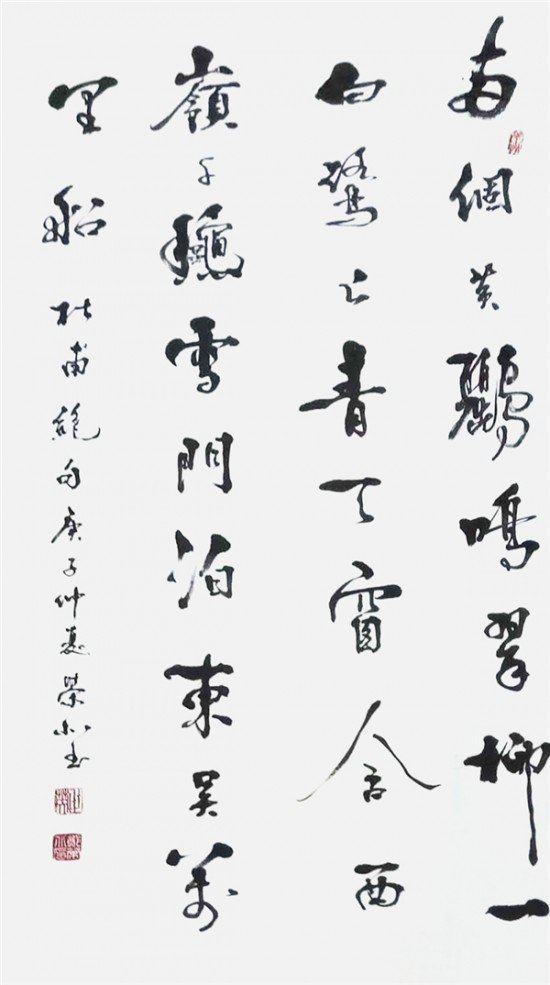 兩個黄鸝鳴翠柳一
白鷺上青天窗含西
嶺千龝雪門泊東吴萬
里船 杜甫絶句庚子仲夏榮書